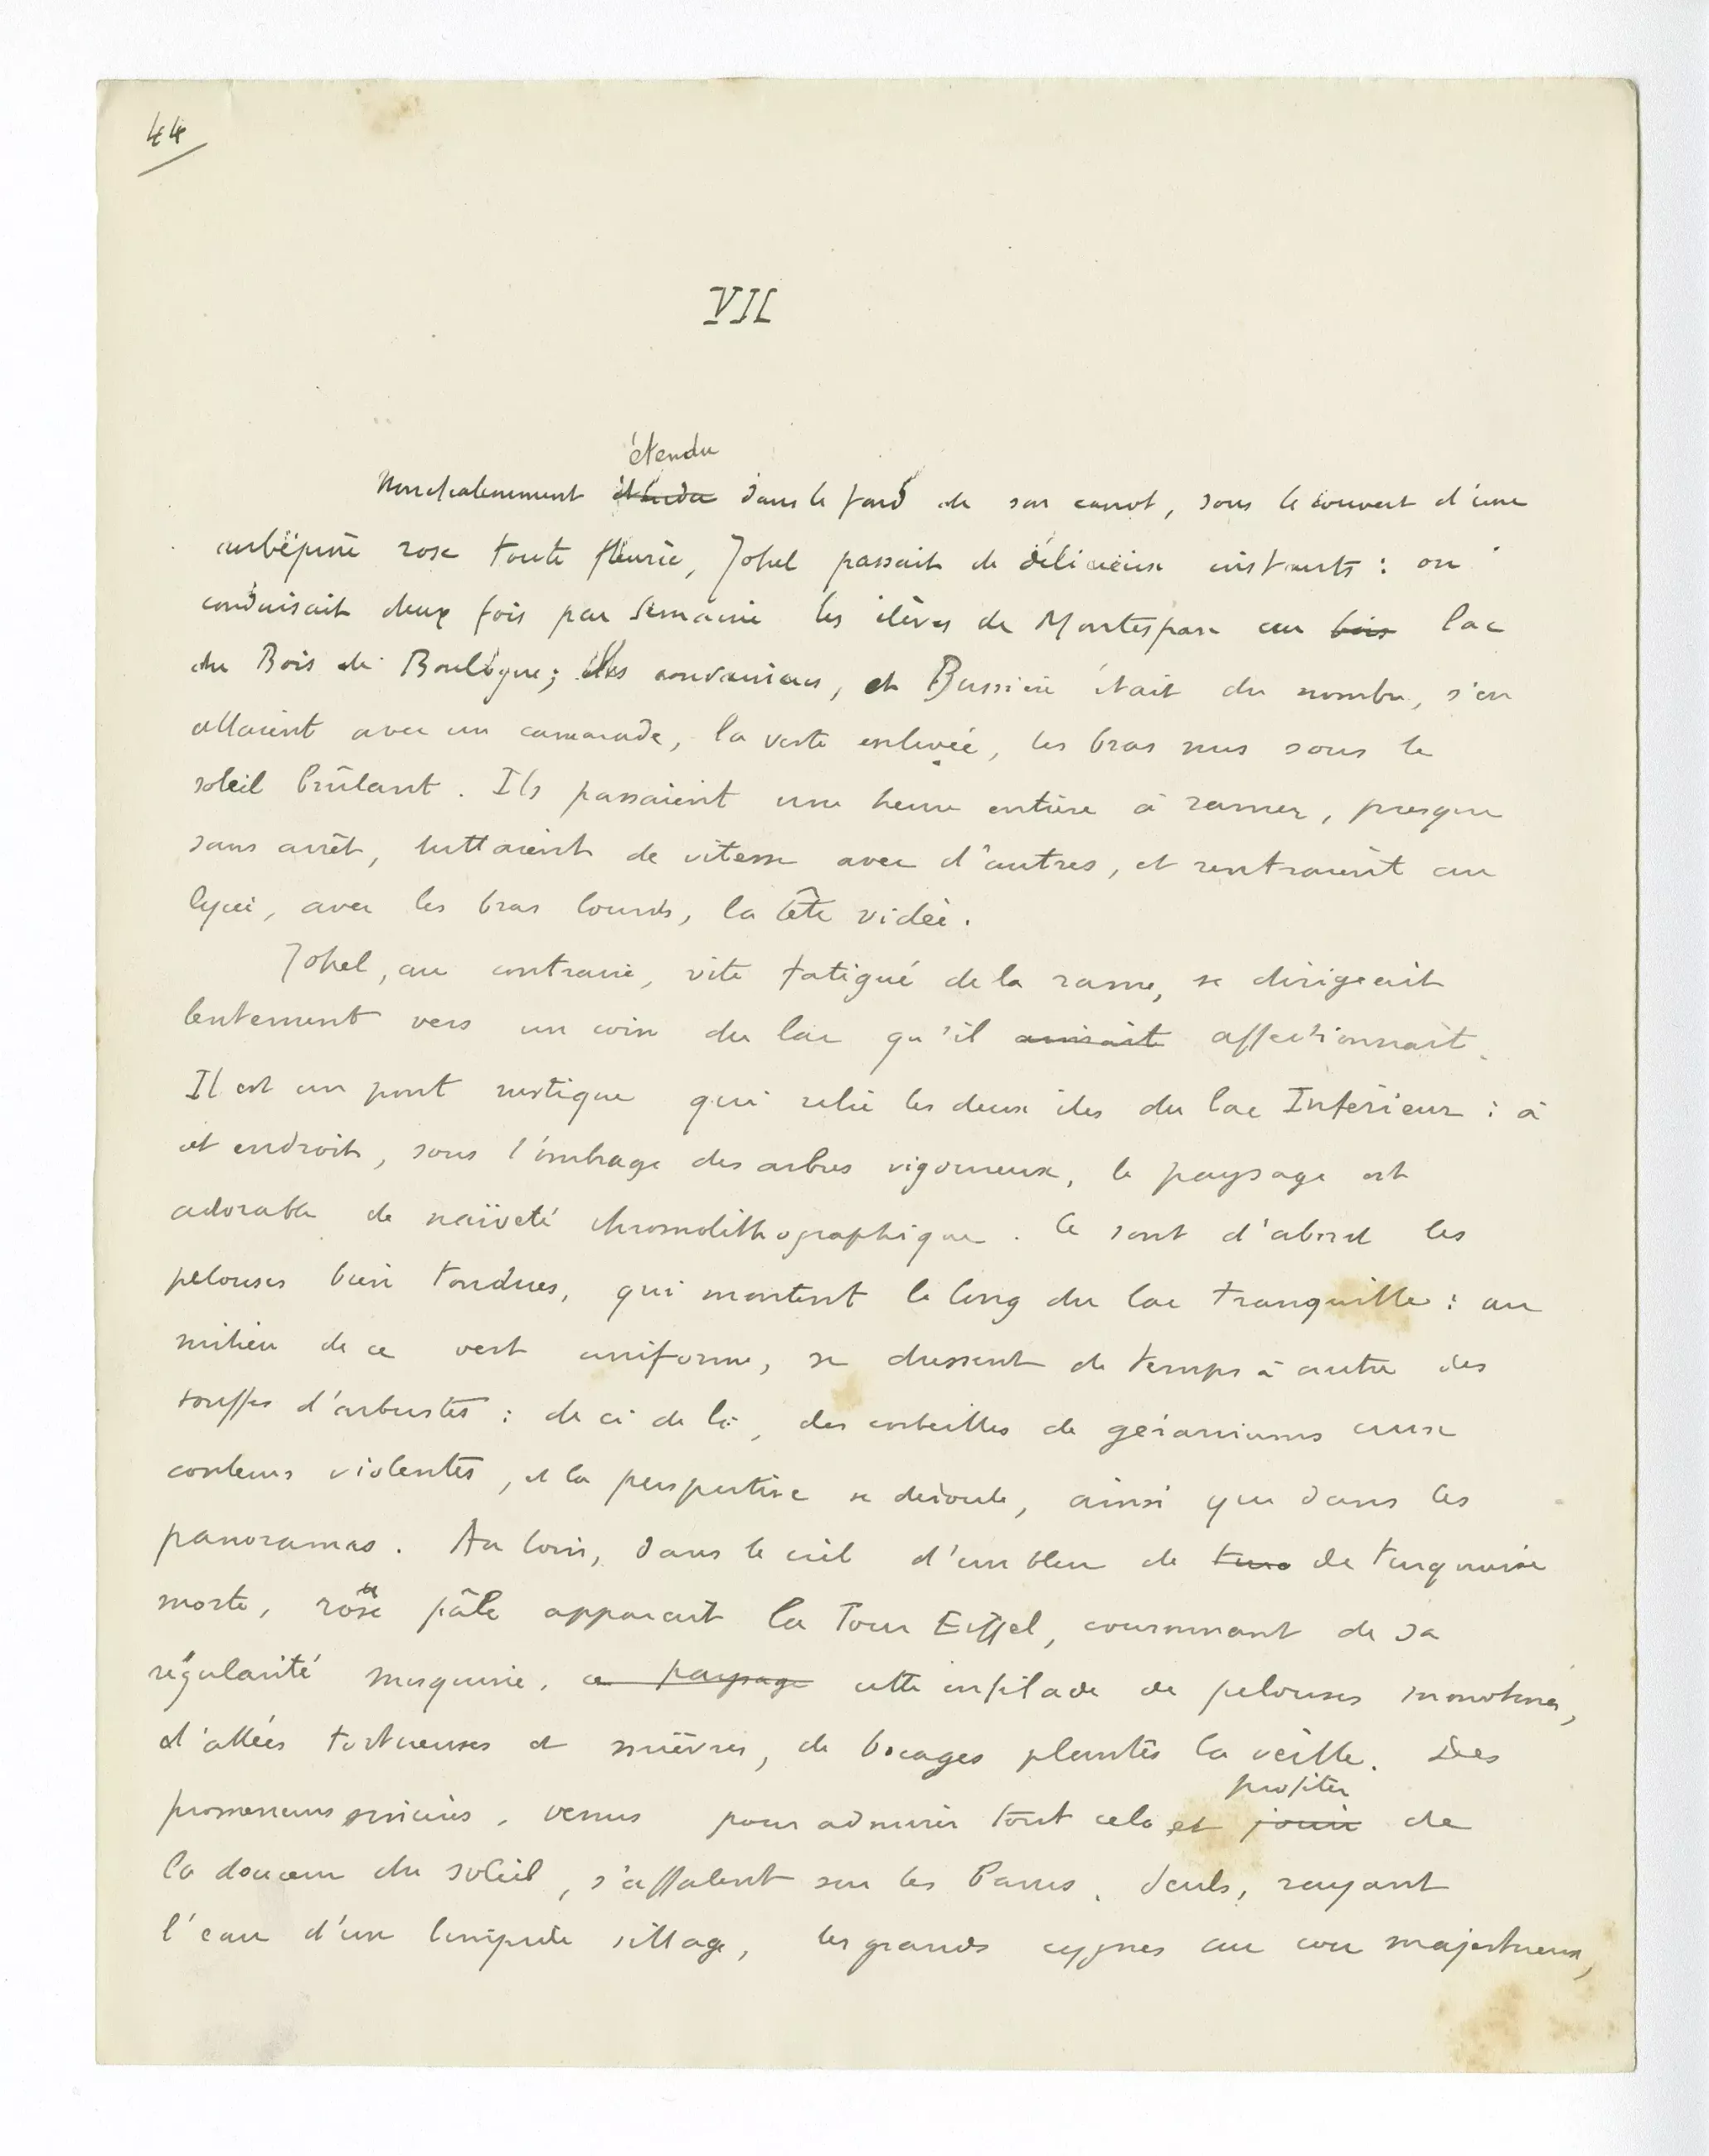 44
VII
étendu
Nonchalemment étendu dans le fond de son canot, sous le couvert d'une
aubépine rose toute fleurie, Johel passait de délicieux instants : on
conduisait deux fois par semaine les élèves de Montespan au bois lac
du Bois de Boulogne ; les , et Bussière était du nombre, s'en
allaient avec un camarade, la veste enlevée, les bras nus sous le
soleil brûlant. Ils passaient une heure entière à ramer, presque
sans arrêt, luttaient de vitesse avec d'autres, et rentraient au
lycée, avec les bras lourds, la tête vidée.
Johel, au contraire, vite fatigué de la rame, se dirigeait
lentement vers un coin du lac qu'il aimait affectionnait.
Il est un pont rustique qui relie les deux îles du lac Inférieur : à
cet endroit, sous l'ombrage des arbres vigoureux, le paysage est
adorable de naïveté chromolithographique. Ce sont d'abord les
pelouses bien tondues, qui montent le long du lac tranquille : au
milieu de ce vert uniforme, se dressent de temps à autre des
touffes d'arbustes : de ci de là, des corbeilles de géraniums aux
couleurs violentes, et la perspective se déroule, ainsi que dans les
panoramas. Au loin, dans le ciel d'un bleu de turq de turquoise
morte, rose pâle apparait la Tour Eiffel, couronnant de sa
régularité mesquine, ce paysage cette enfilade de pelouses monotones,
d'allées tortueuses et mièvres, de bocages plantés la veille. Des
profiter
promeneurs sincères, venus pour admirer tout cela et jouir de
la douceur du soleil, s'affalent sur les bancs. Seuls, rayant
l'eau d'un limpide sillage, les grands cygnes au cou majestueux,